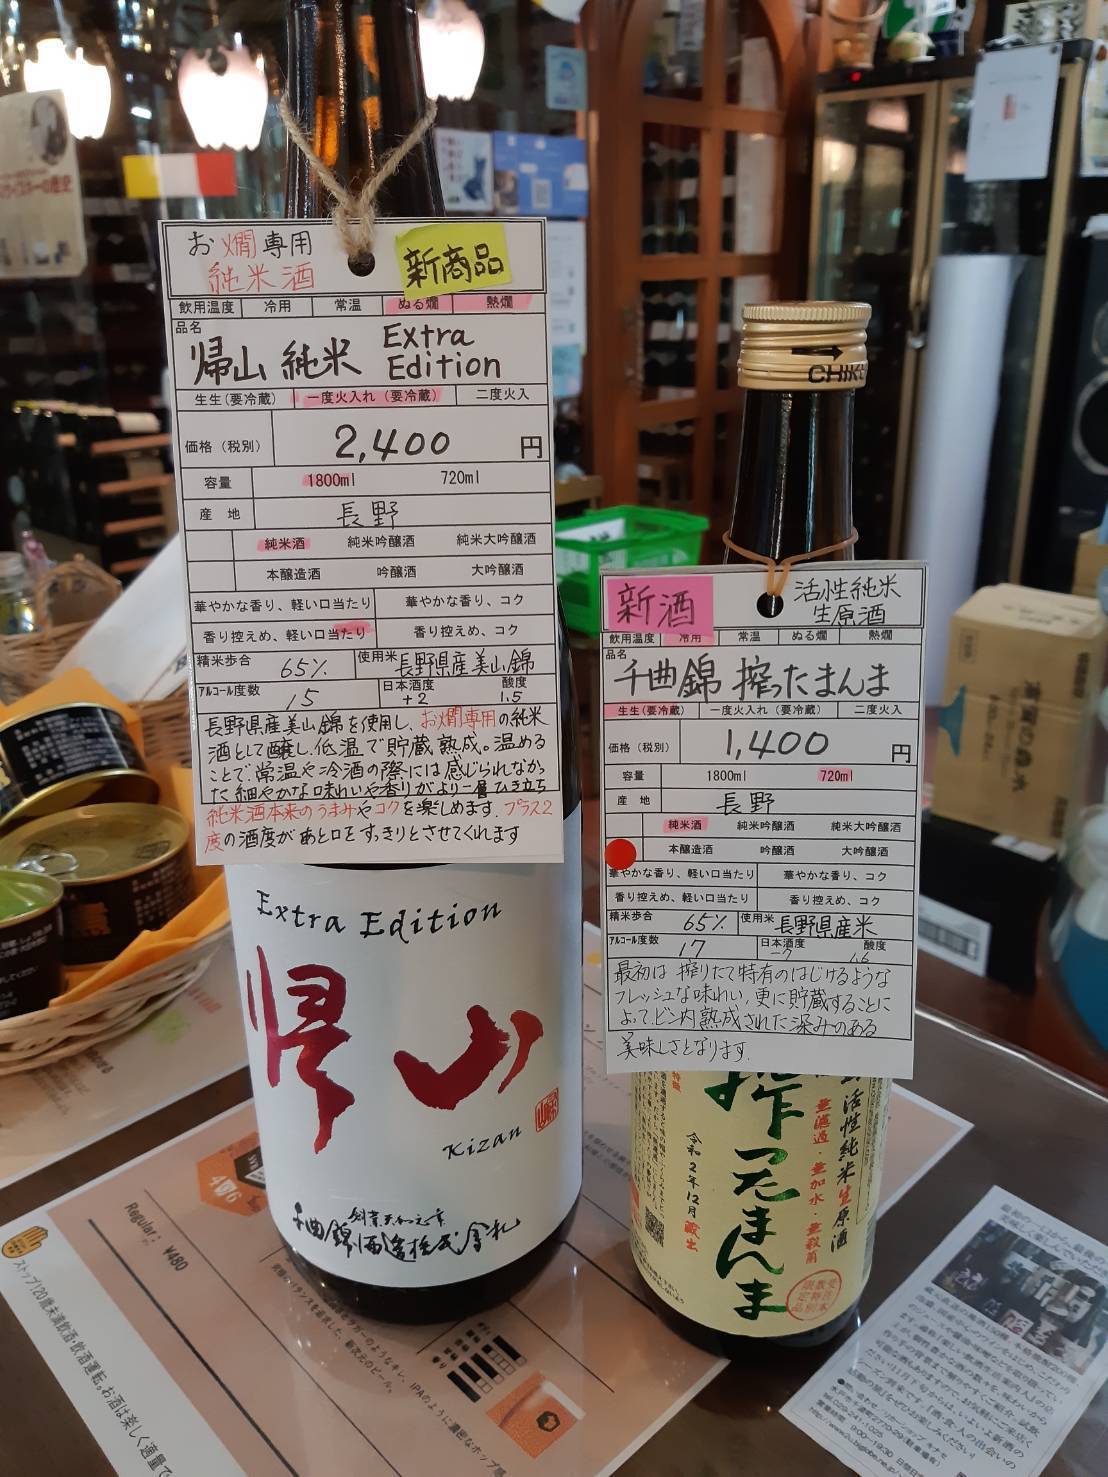 お燗専用
純米酒
新商品
飲用温度 冷用 常温 ぬる燗 熱燗
品名
帰山 純米 Extra Edition
生生(要冷蔵) 一度火入れ(要冷蔵) 二度火入
価格(税別) 2,400 円
容量 1800ml 720ml
産地 長野
純米酒 純米吟醸酒 純米大吟醸酒
本醸造酒 吟醸酒 大吟醸酒
華やかな香り、軽い口当たり 華やかな香り、コク
香り控えめ、軽い口当たり 香り控えめ、コク
精米歩合 65% 使用米 長野県産美山錦
アルコール度数 15 日本酒度 +2 酸度 1.5
長野県産美山錦を使用し、お燗専用の純米
酒として醸し、低温で貯蔵熟成。温める
ことで、常温や冷酒の際には感じられなかっ
た細やかな味わいや香りがより一層ひき立ち
純米酒本来のうまみやコクを楽しめます。プラス2
度の酒度があと口をすっきりとさせてくれます
Extra Edition
帰山
Kizan
千曲錦酒造株式会社
新酒
活性純米
生原酒
飲用温度 冷用 常温 ぬる燗 熱燗
品名
千曲錦 搾ったまんま
生生(要冷蔵) 一度火入れ(要冷蔵) 二度火入
価格(税別) 1,400 円
容量 1800ml 720ml
産地 長野
純米酒 純米吟醸酒 純米大吟醸酒
本醸造酒 吟醸酒 大吟醸酒
華やかな香り、軽い口当たり 華やかな香り、コク
香り控えめ、軽い口当たり 香り控えめ、コク
精米歩合 65% 使用米 長野県産米
アルコール度数 17 日本酒度 -7 酸度 1.6
最初は搾りたて特有のはじけるような
フレッシュな味わい、更に貯蔵することに
よって、ビン内熟成された深みのある
美味しさとなります。
搾ったまんま
活性純米生原酒
無濾過・無加水・無殺菌
令和2年12月 蔵出
Regular: ¥480
406
ストップ!20歳未満飲酒・飲酒運転。お酒は楽しく適量で